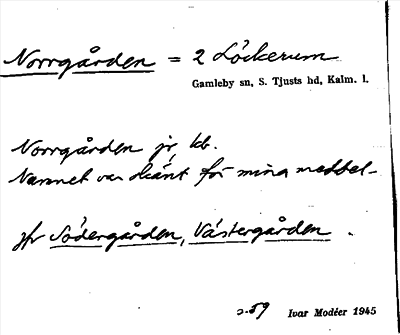 Norrgården = 2 Löckerum
Gamleby sn, S. Tjusts hd, Kalm. l.
Norrgården jr, kb.
Namnet var okänt för mina meddel-
jfr Södergården, Västergården .
Ivar Modéer 1945